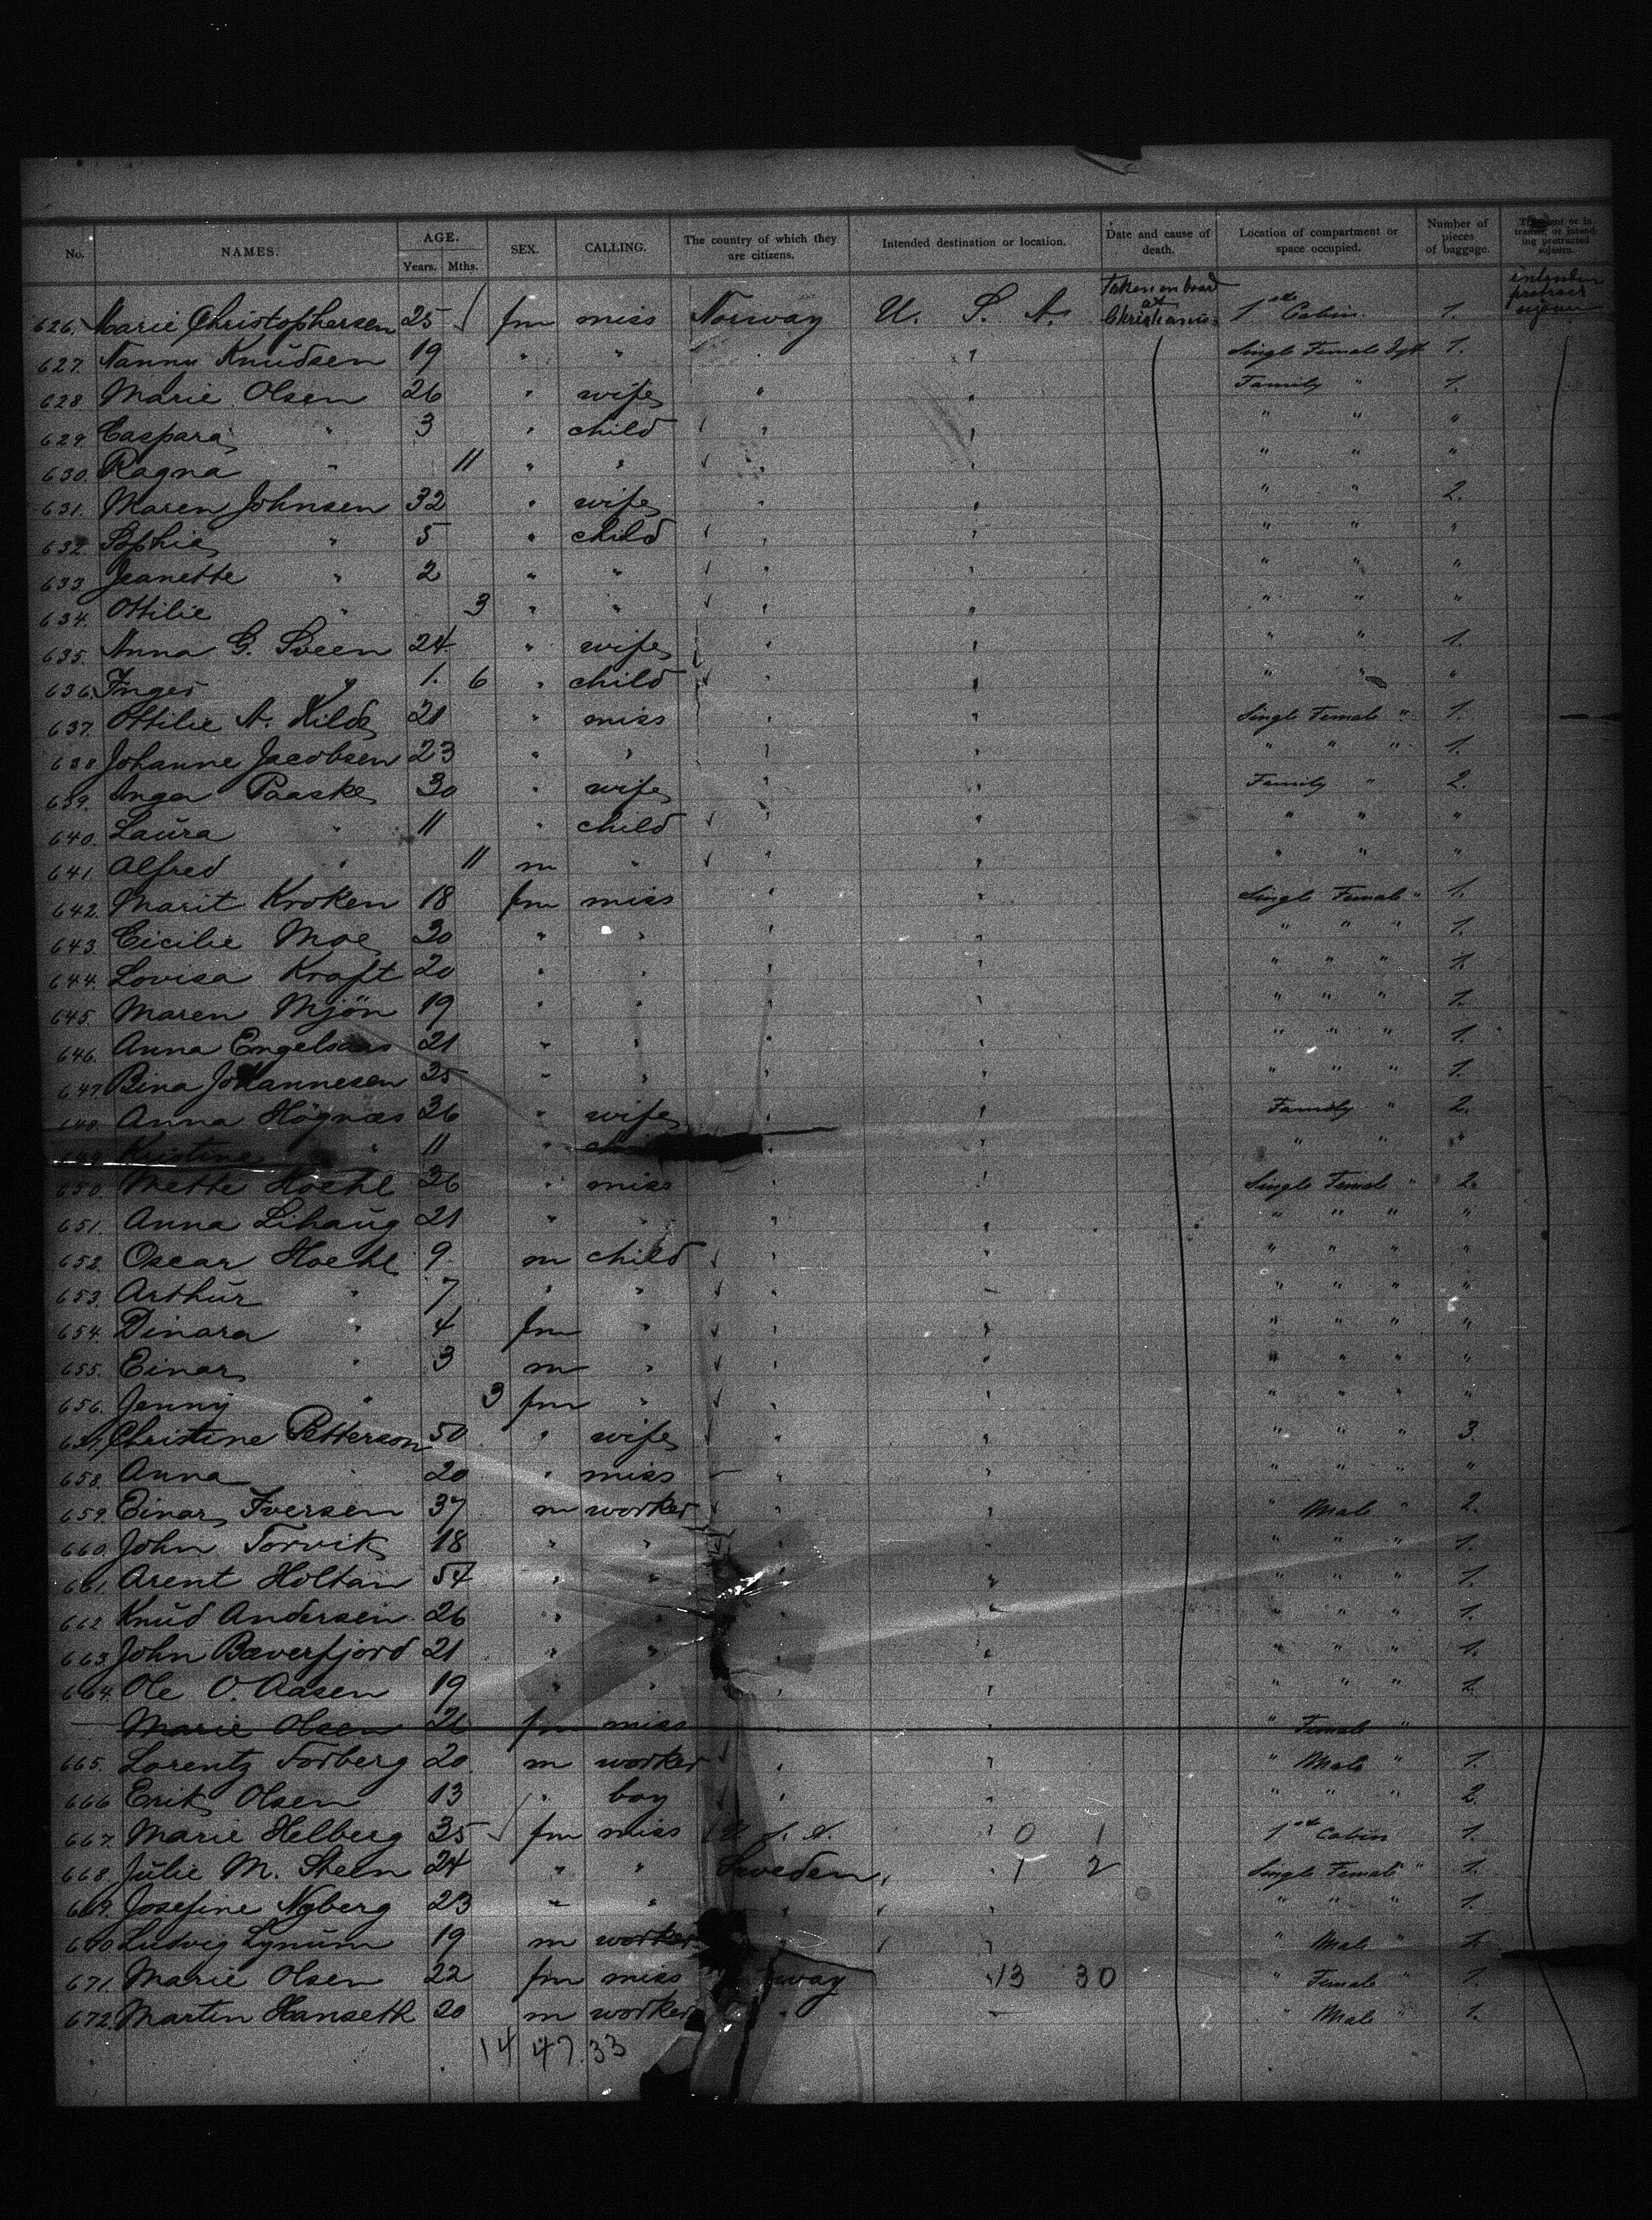 No. NAMES. AGE. Years. Mths. SEX. CALLING. The country of which they are citizens. Intended destination or location. Date and cause of death. Location of compartment or space occupied. Number of pieces of baggage.
626. Marie Christophersen 25 fm miss Norway U. S. A. Taken on board at Christiania 1st Cabin. 1.
627. Nanny Knudsen 19 " " " " Single Female 1.
628. Marie Olsen 26 " wife " " Family " 1.
629. Caspara " 3 " child " " " " "
630. Ragna " 11 " " " " " " "
631. Maren Johnsen 32 " wife " " " " 2.
632. Sophie " 5 " child " " " " "
633. Jeanette " 2 " " " " " " "
634. Ottilie " 3 " " " " " " "
635. Anna G. Sveen 24 " wife " " " " 1.
636. Inger " 1. 6 " child " " " " "
637. Ottilie A. Kilde 21 " miss " " Single Female " 1.
638. Johanne Jacobsen 23 " " " " " " " 1.
639. Inga Paaske 30 " wife " " Family " 2.
640. Laura " 11 " child " " " " "
641. Alfred " 11 m " " " " " "
642. Marit Kroken 18 fm miss " " Single Female " 1.
643. Cicilie Moe 20 " " " " " " " 1.
644. Lovisa Kraft 20 " " " " " " " 1.
645. Maren Mjön 19 " " " " " " " 1.
646. Anna Engelsaas 21 " " " " " " " 1.
647. Bina Johannesen 25 " " " " " " " 1.
648. Anna Högnæs 36 " wife " " Family " 2.
649. Kristine " 11 " " " " " "
650. Mette Hoehl 26 " miss " " Single Female " 2.
651. Anna Lihaug 21 " " " " " " " "
652. Oscar Hoehl 9. m child " " " " " "
653. Arthur " 7 " " " " " " " "
654. Dinara " 4 fm " " " " " " "
655. Einar " 3 m " " " " " " "
656. Jenny " 3 fm " " " " " " "
657. Christine Petterson 50 " wife " " " " " 3.
658. Anna " 20 " miss " " " " " "
659. Einar Iversen 37 m worker " " " Male " 2.
660. John Torvik 18 " " " " " " " 1.
661. Arent Holtan 54 " " " " " " " 1.
662. Knud Andersen 26 " " " " " " " 1.
663. John Bæverfjord 21 " " " " " " " 1.
664. Ole O. Aasen 19 " " " " " " " 1.
Marie Olsen fm miss " " " Female "
665. Lorentz Forberg 20. m worker " " " Male " 1.
666 Erik Olsen 13 " boy " " " " " 2.
667. Marie Helberg 35 fm miss U. S. A. " 0 1 1st Cabin 1.
668. Julie M. Steen 24 " " Sweden " 1 2 Single Female " 1.
669. Josefine Nyberg 23 " " " " " " " 1.
670 Ludvig Lynum 19 m worker " " Male " 1.
671. Marie Olsen 22 fm miss way " 13 30 " Female " 1.
672. Martin Hanseth 20 m worker " " " Male " 1.
14 47.33